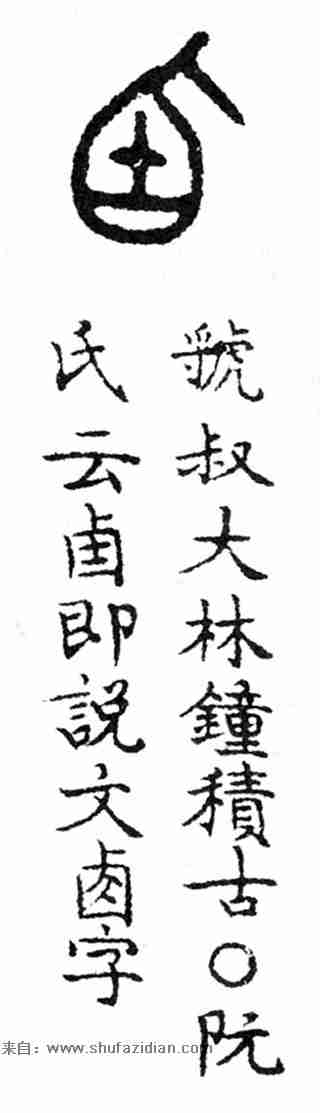 虢叔大林鐘積古○阮
氏云卣即説文卤字
来自：www.shufazidian.com